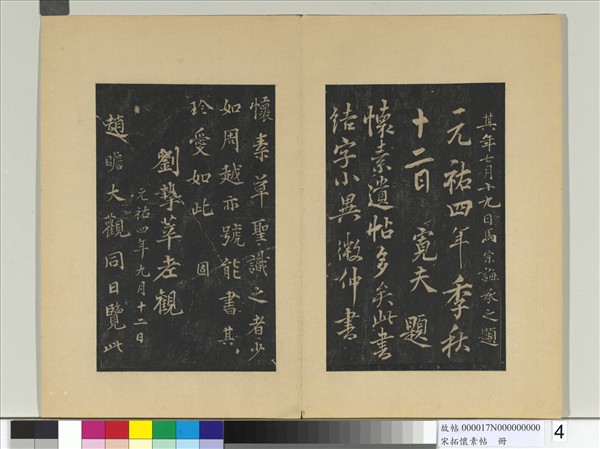 其年七月十九日馬宗誨承之題
元祐四年季秋
十二日 寬夫題
懷素遺帖多矣此書
結字小異微仲書
懷素草聖識之者少
如周越亦號能書其
珍愛如此 固
劉摯莘老觀
元祐四年九月十二日
趙瞻大觀同日覽此
故帖 000017N000000000
宋拓懷素帖 冊
4